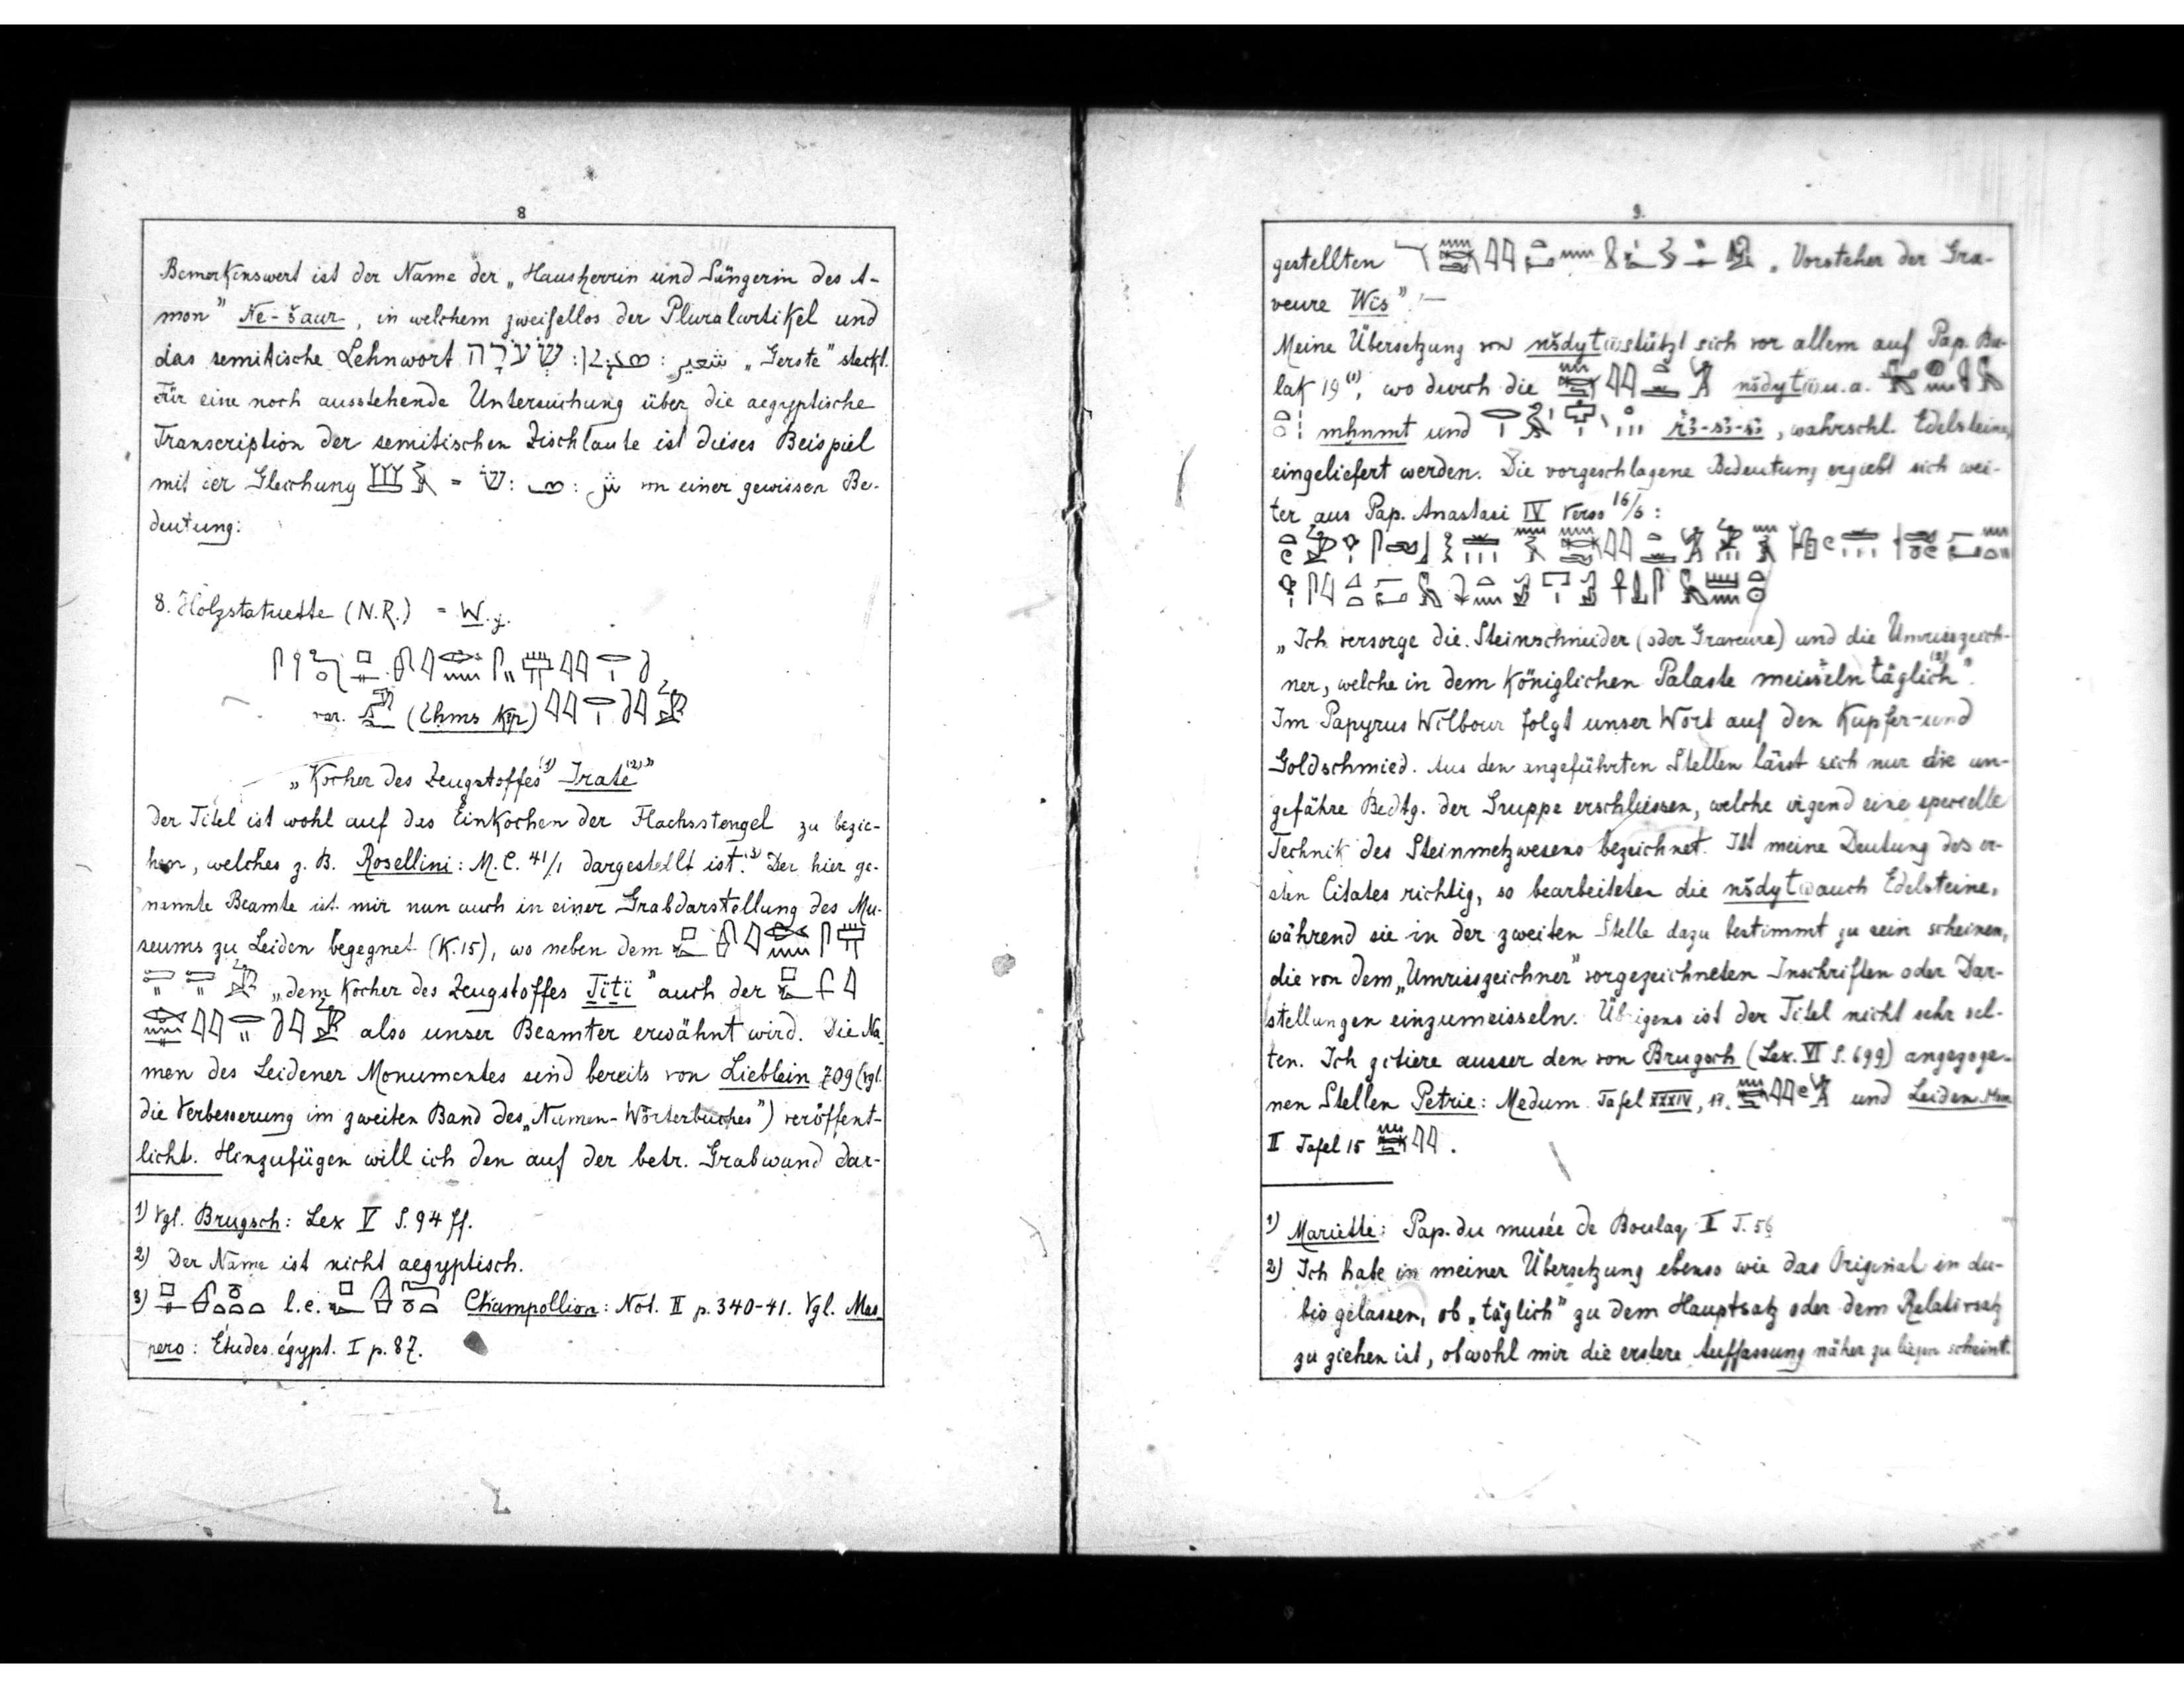 8
Bemerkenswert ist der Name der „Hausherrin und Sängerin des A-
mon" Ne-šaur, in welchem zweifellos der Pluralartikel und
das semitische Lehnwort שְׂעֹרָה : : شعير „Gerste" steckt.
Für eine noch ausstehende Untersuchung über die aegyptische
Transcription der semitischen Zischlaute ist dieses Beispiel
mit der Gleichung = שׂ : : von einer gewissen Be-
deutung:
8. Holzstatuette (N.R.) = W. j.
var. (Ehms Kyr)
„Kocher des Zeugstoffes (1) Irate (2)"
der Titel ist wohl auf das Einkochen der Flachsstengel zu bezie-
hen, welches z. B. Rosellini: M. C. 41/1 dargestellt ist. (3) Der hier ge-
nannte Beamte ist mir nun auch in einer Grabdarstellung des Mu-
seums zu Leiden begegnet (K. 15), wo neben dem
„dem Kocher des Zeugstoffes Tïtï" auch der
also unser Beamter erwähnt wird. Die Na-
men des Leidener Monumentes sind bereits von Lieblein 709 (vgl.
die Verbesserung im zweiten Band des „Namen-Wörterbuches") veröffent-
licht. Hinzufügen will ich den auf der betr. Grabwand dar-
1) Vgl. Brugsch: Lex V S. 94 ff.
2) Der Name ist nicht aegyptisch.
3) l.c. Champollion: Not. II p. 340-41. Vgl. Mas
pero: Études égypt. I p. 87.
9.
gestellten „Vorsteher der Gra-
veure Wis" —
Meine Übersetzung von nšdytw stützt sich vor allem auf Pap. Bu-
lak 19 (1), wo durch die nšdytw u. a.
mhnmt und , wahrschl. Edelsteine,
eingeliefert werden. Die vorgeschlagene Bedeutung ergiebt sich wei-
ter aus Pap. Anastasi IV Verso 16/6 :
„Ich versorge die Steinschneider (oder Graveure) und die Umrisszeich-
ner, welche in dem Königlichen Palaste meisseln täglich" (2).
Im Papyrus Wilbour folgt unser Wort auf den Kupfer- und
Goldschmied. Aus den angeführten Stellen lässt sich nur die un-
gefähre Bedtg. der Gruppe erschliessen, welche irgend eine specielle
Technik des Steinmetzwesens bezeichnet. Ist meine Deutung des er-
sten Citates richtig, so bearbeiteten die nšdytw auch Edelsteine,
während sie in der zweiten Stelle dazu bestimmt zu sein scheinen,
die von dem „Umrisszeichner" vorgezeichneten Inschriften oder Dar-
stellungen einzumeisseln. Übrigens ist der Titel nicht sehr sel-
ten. Ich zitiere ausser den von Brugsch (Lex. VI S. 699) angezoge-
nen Stellen Petrie: Medum Tafel XXXIV, 17. und Leiden Mon
II Tafel 15 .
1) Mariette: Pap. du musée de Boulaq II T. 56
2) Ich habe in meiner Übersetzung ebenso wie das Original in du-
bio gelassen, ob „täglich" zu dem Hauptsatz oder dem Relativsatz
zu ziehen ist, obwohl mir die erstere Auffassung näher zu liegen scheint.